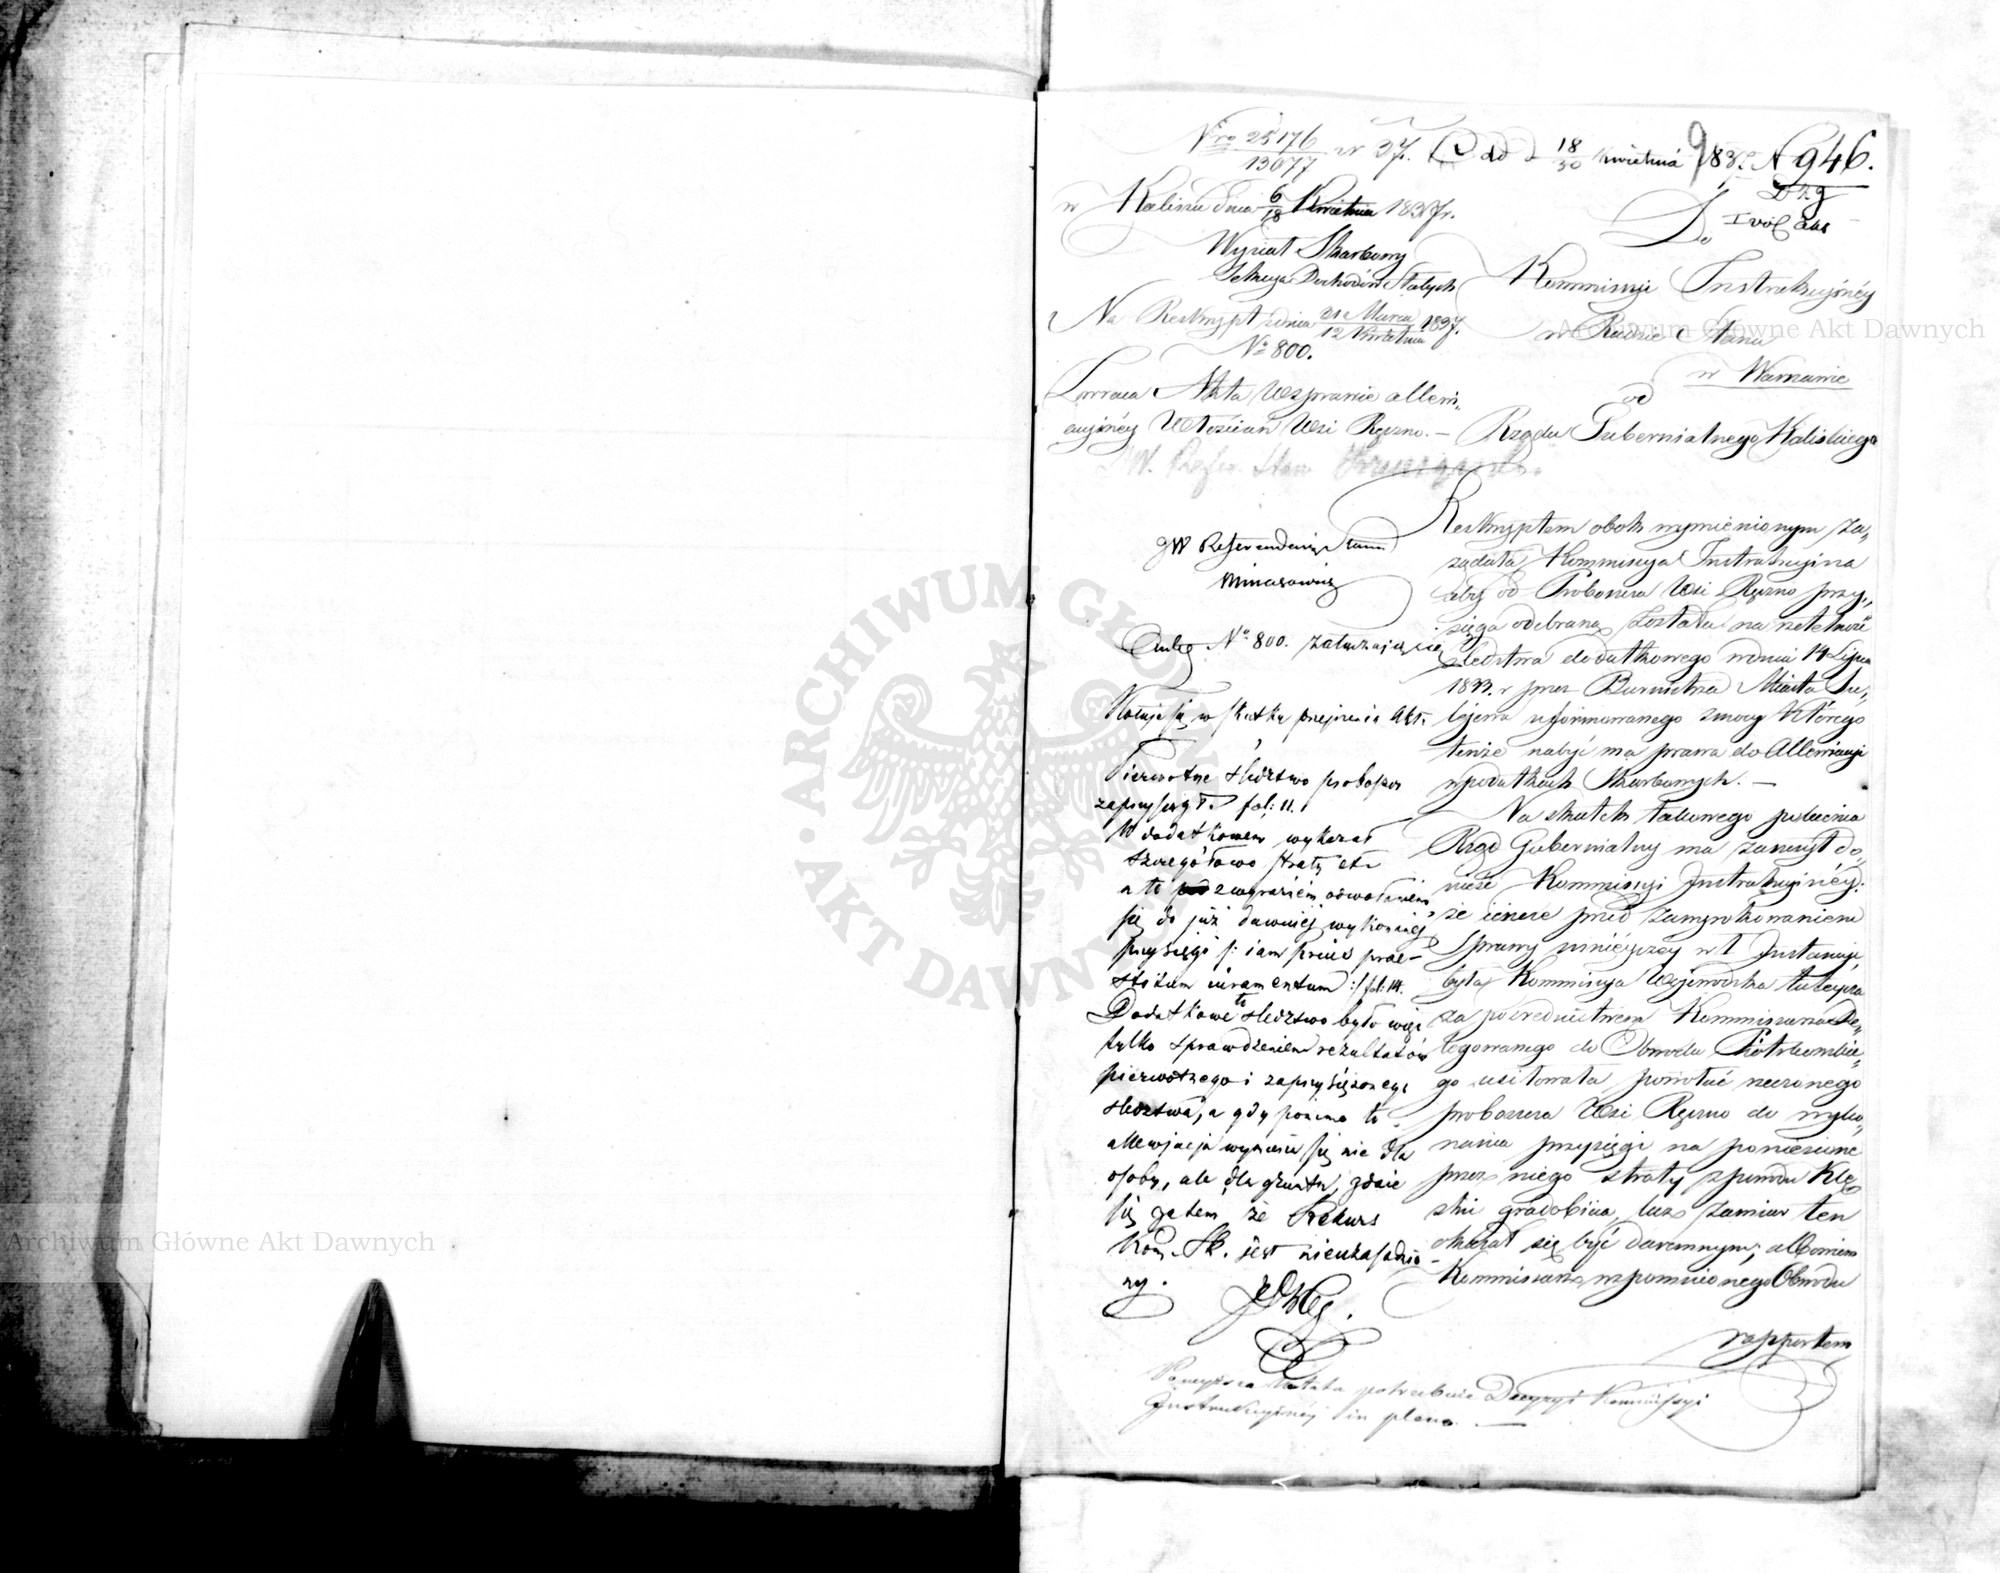 Nro 25176
13077
w 37.
dd 18/30 Kwietnia 1837. N 946.
w Kaliszu dnia 6/18 Kwietnia 1837 r.
Wydział Skarbowy
Sekcya Dochodów Stałych
Na Reskrypt z dnia 31 Marca / 12 Kwietnia 1837.
No 800.
Zwraca Akta w sprawie allewi-
acyjnéy Włościan Wsi Ręczno. —
Do
Kommissyi Instrukcyinéy
w Radzie Stanu
w Warszawie
od
Rządu Gubernialnego Kaliskiego
JW. Refer. Stanu
JW Referendarz Stanu
Minasowicz
Reskryptem obok wymienionym za-
żądała Kommissya Instrukcyina
aby od Proboszcza Wsi Ręczno przy-
sięga odebraną została na rzetelność
śledztwa dodatkowego w dniu 14 Lipca
1833 r przez Burmistrza Miasta Su-
lejowa uformowanego z mocy którego
tenże nabyć ma prawa do Allewiacyi
w podatkach Skarbowych. —
Na skutek takowego polecenia
Rząd Gubernialny ma zaszczyt do-
nieść Kommissyi Instrukcyinéy:
że jeszcze przed zawyrokowaniem
Sprawy ninieyszey w I Instancyi,
była Kommissya Wojewódzka tuteysza
za pośrednictwem Kommissarza De-
legowanego do Obwodu Piotrkowskie-
go usiłowała powołać rzeczonego
proboszcza Wsi Ręczno do wyko-
nania przysięgi na poniesione
przez niego straty z powodu klę-
ski gradobicia, lecz zamiar ten
okazał się być daremnym; albowiem
Kommissarz wspomnionego Obwodu
rapportem
No 800. załączający się
Notuje się w skutku przejrzenia Akt.
Pierwotne śledztwo proboszcz
zaprzysiągł. fol: 11.
W dodatkowem wykazał
szczegółowo straty etc
a to z wyraźnem odwołaniem
się do już dawniej wykonanej
przysięgi /: iam prius prae-
stitum iuramentum :/ fol: 14.
Dodatkowe to śledztwo było więc
tylko sprawdzeniem rezultatów
pierwotnego i zaprzysiężonego
śledztwa, a gdy pomimo to
allewjacja wymierza się nie dla
osoby, ale dla gruntu, zdaje
się zatem że Rekurs
Kom. Sk. jest nieuzasadnio-
ny.
Powyższa notata potrzebuie Decyzyi Kommissyi
Instrukcyinéy in pleno. —
Archiwum Główne Akt Dawnych
Archiwum Główne Akt Dawnych
ARCHIWUM GŁÓWNE AKT DAWNYCH